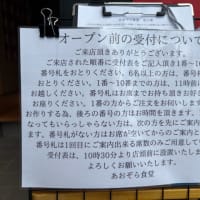 オープン前の受付について
ご来店頂きありがとうございます。
ご来店された順番に受付表をご記入頂き1番~10
番号札をおとりください。6名以上の方は、番号札
をおとりください。1番~10番までの方は、11時前に
お越しください。番号札はお席までお持ち頂きお好き
お座りください。1番の方からご注文をお伺いします
お作りする為、後ろの番号の方はお時間を頂きます。
なってもいらっしゃらない方は、次の方を先にご案内
ます。番号札がない方はお席が空いてからのご案内と
番号札は1回目にご案内出来る席数のみご用意して
受付表は、10時30分より店頭前に設置いたします
よろしくお願いいたします。
あおぞら食堂